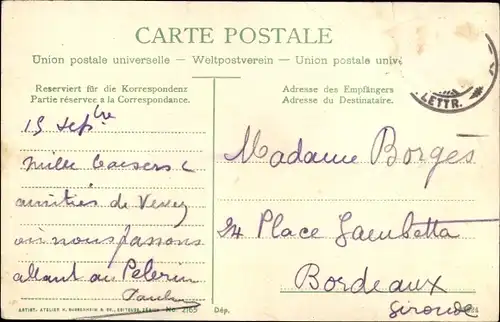 CARTE POSTALE
Union postale universelle – Weltpostverein – Union postale univ
Reserviert für die Korrespondenz
Partie réservee a la Correspondance.
Adresse des Empfängers
Adresse du Destinataire.
LETTR.
15 Sepbre
mille baisers &
amitiés de Vevey
où nous passons
allant au Pelerin
Madame Borges
24 Place Gambetta
Bordeaux
Gironde
No. 2165
Dép.